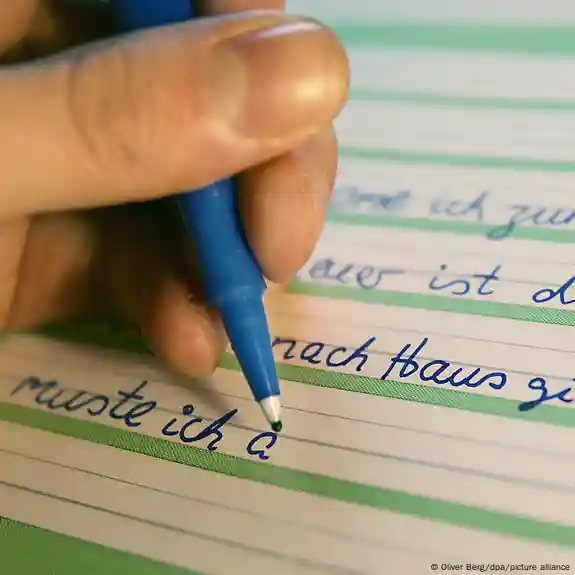 ich zur
ist d
nach Haus gi
muste ich a
© Oliver Berg/dpa/picture alliance